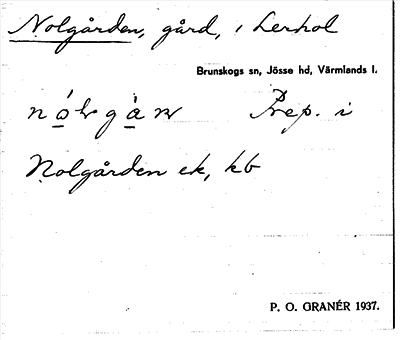 Nolgården, gård, i Lerhol
Brunskogs sn, Jösse hd, Värmlands l.
Prep. i
Nolgården ek, kb
P. O. GRANÉR 1937.